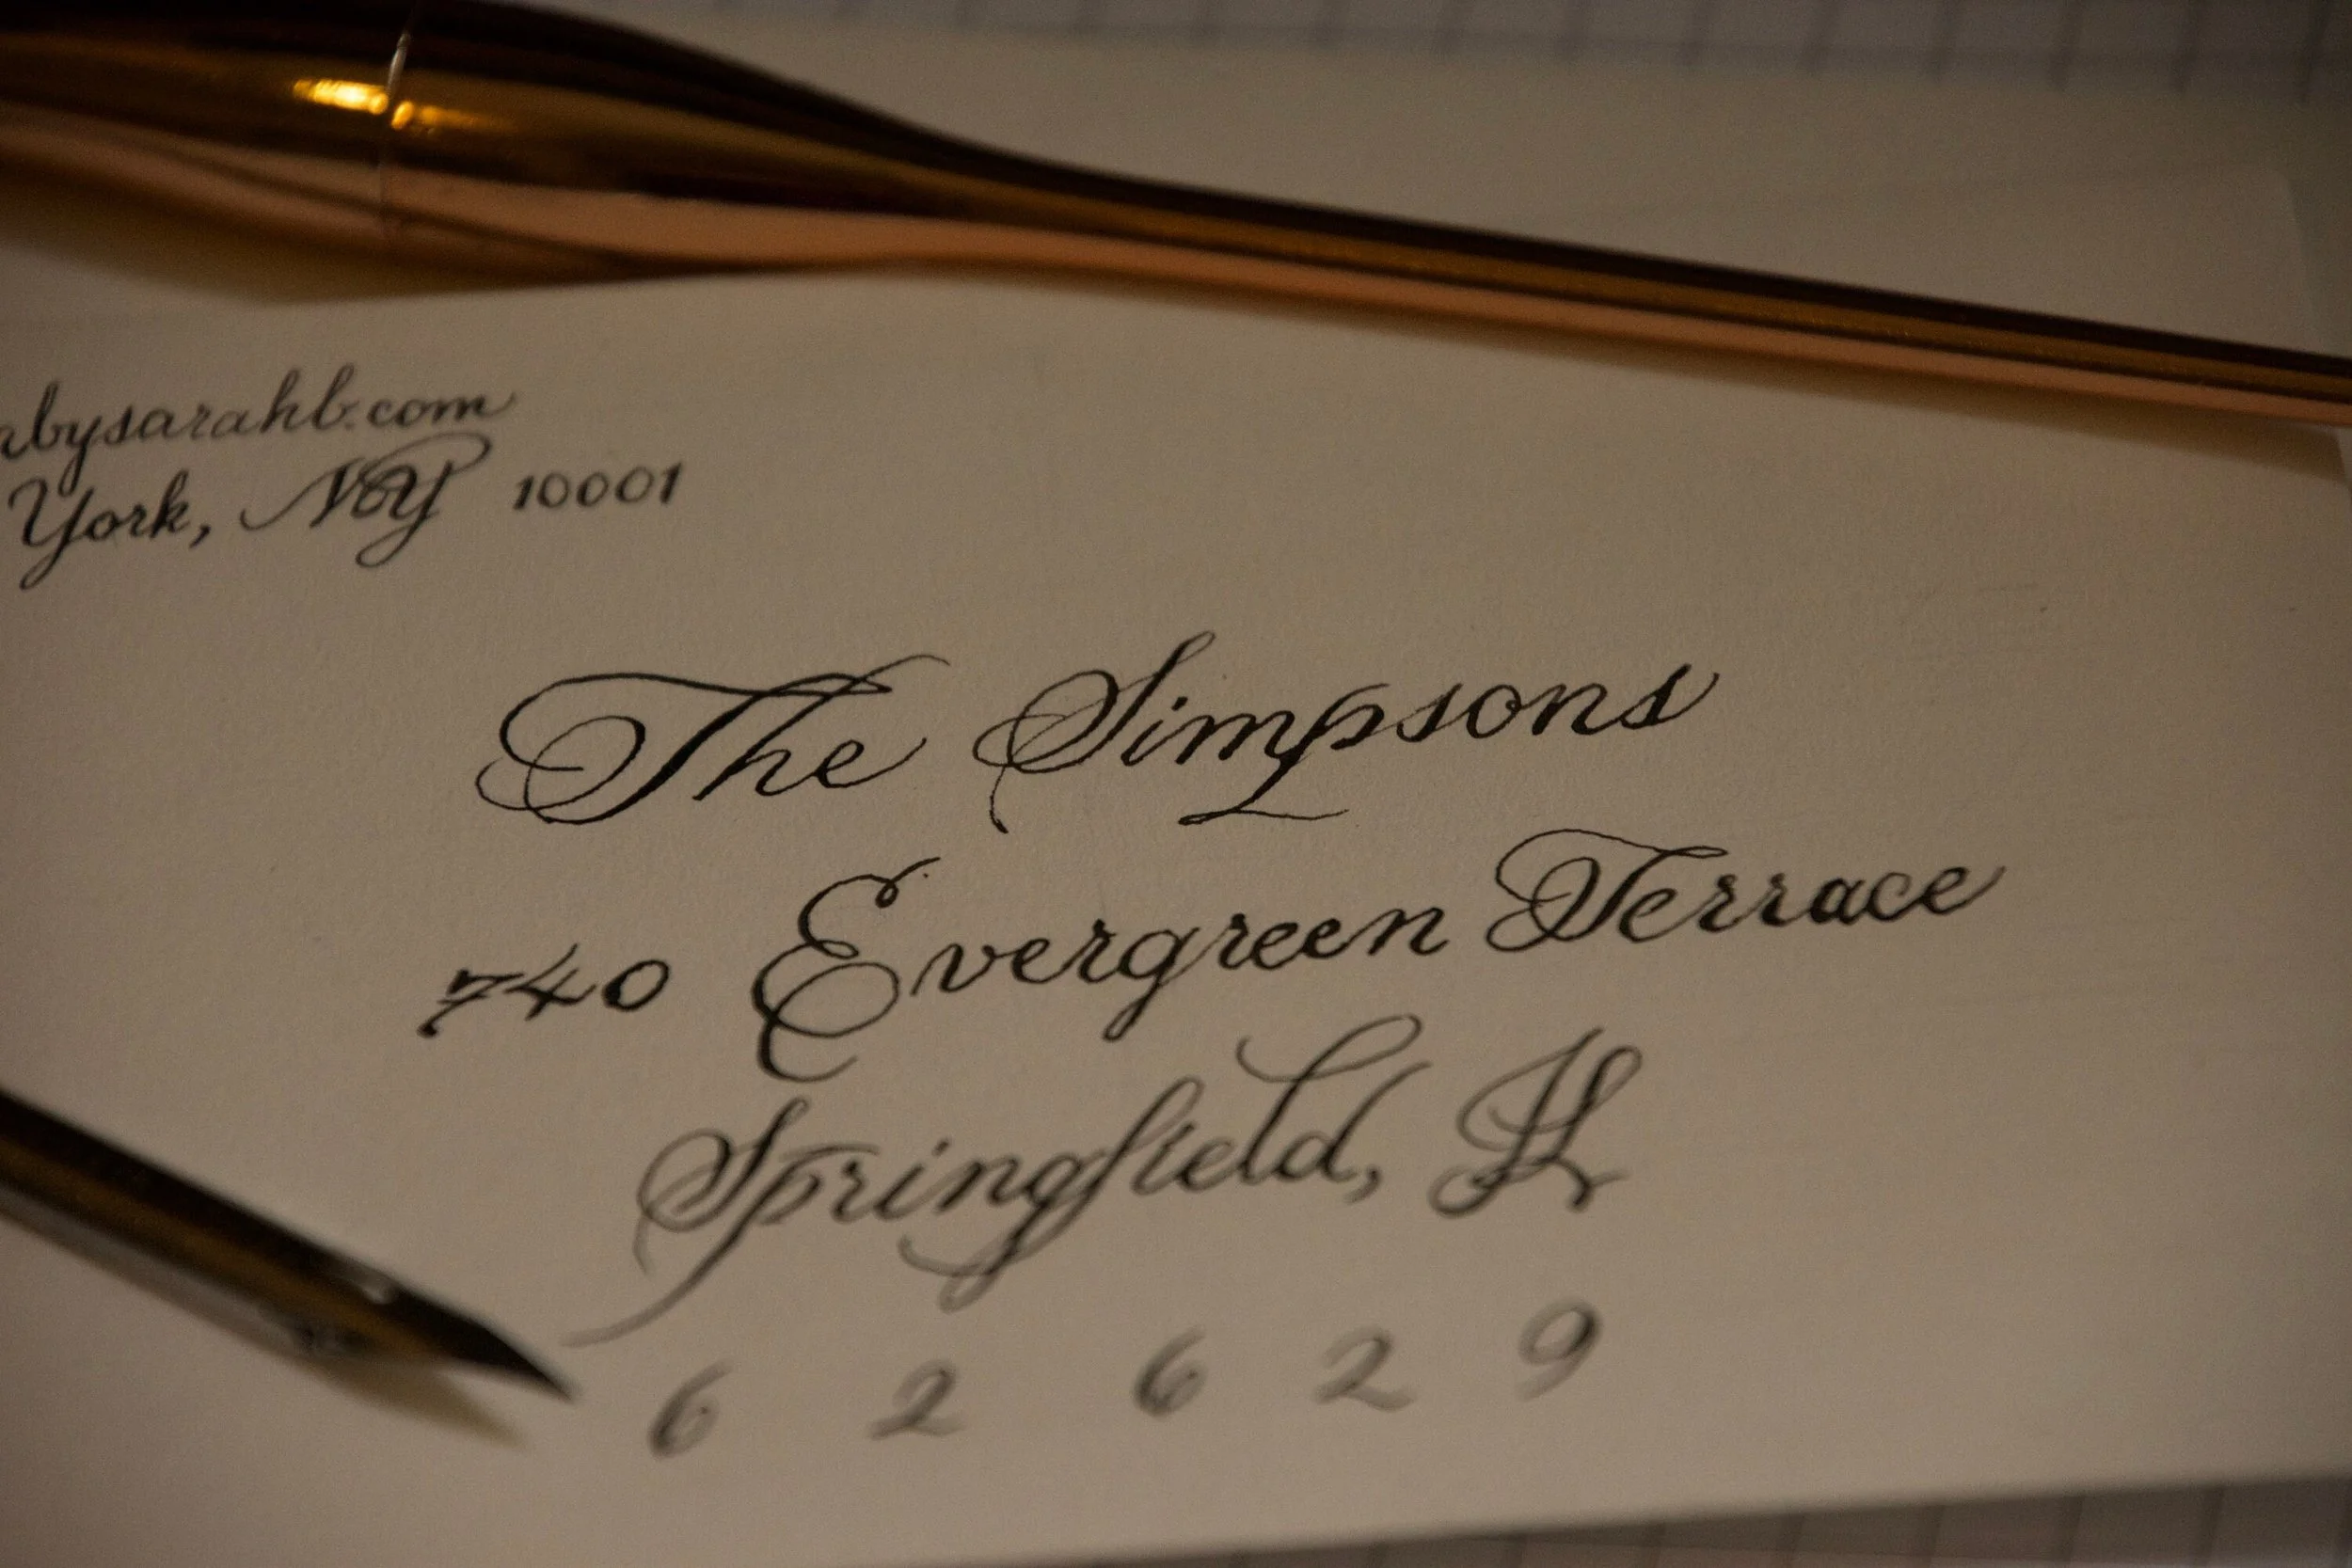 absarahb.com
York, NY 10001
The Simpsons
740 Evergreen Terrace
Springfield, IL
6 2 6 2 9